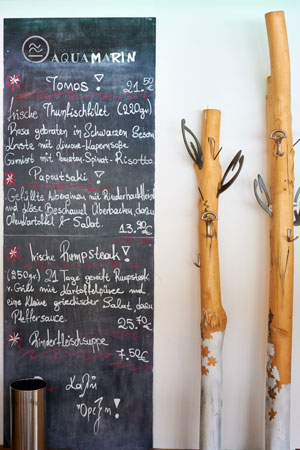 AQUAMARIN
TOMOS! 21.50
frische Thunfischfilet (220gr.)
Rosa gebraten in Schwarzen Sesam
Kruste mit Limone-Kapernsoße
Garniert mit Tomaten-Spinat-Risotto.
Papoutsaki!
Gefüllte Auberginen mit Rinderhackfleisch
und Käse Beschamel Überbacken, dazu
Ofenkartoffel & Salat.
13.90€
Irische Rumpsteak!
(250gr.) 21 Tage gereift Rumpsteak
v. Grill mit Kartoffelpüree und
eine kleine griechischer Salat, dazu
Pfeffersauce. 25.70€
Rinderfleischsuppe
7.50€